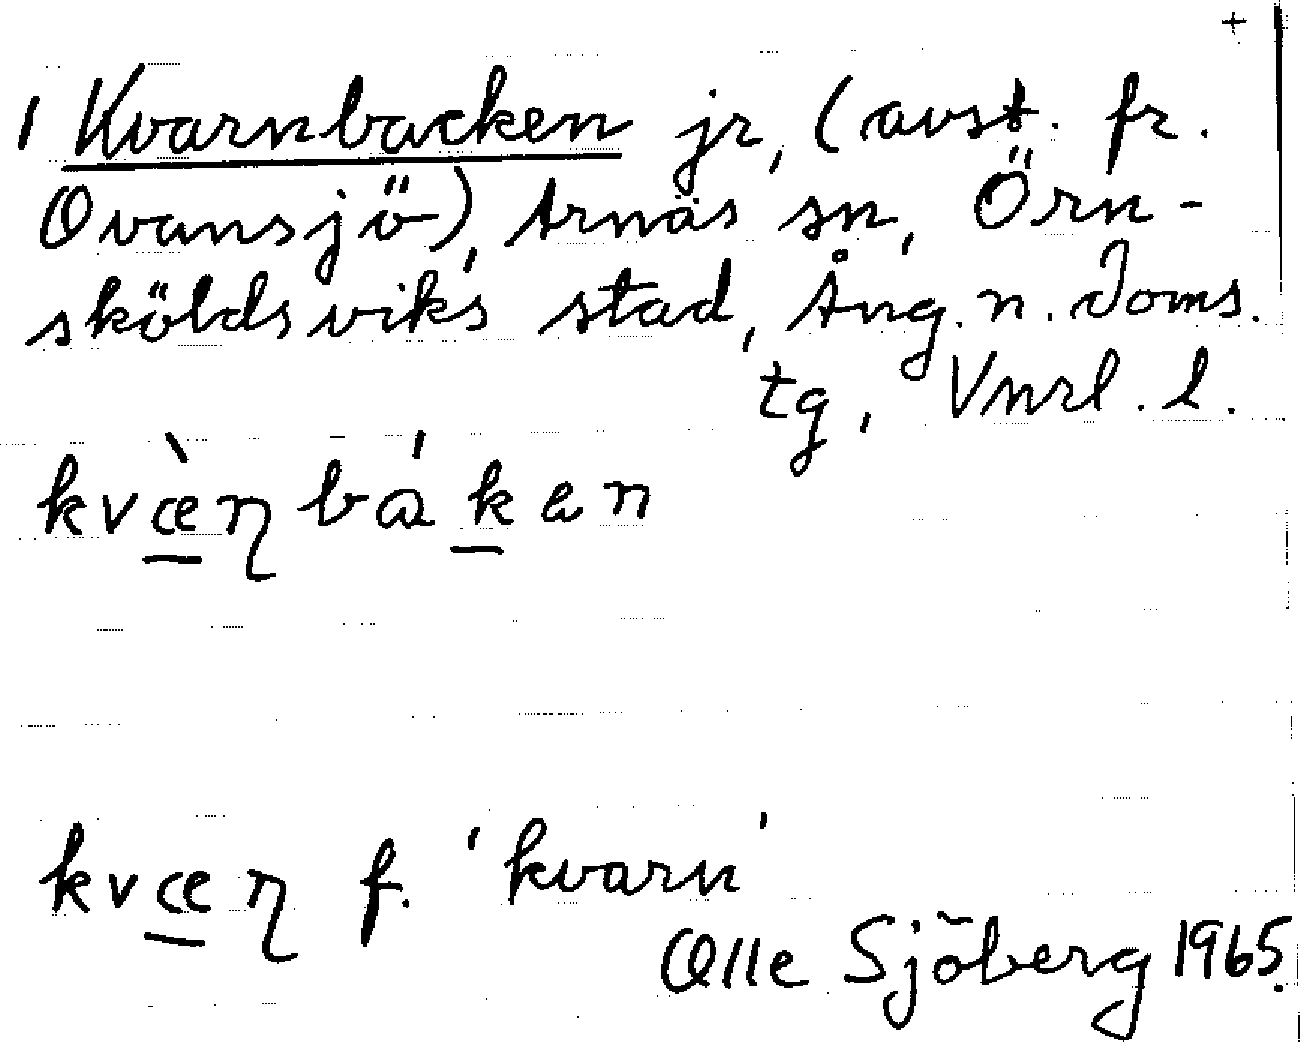 +
1 Kvarnbacken jr, (avst. fr.
Ovansjö), Arnäs sn, Örn-
sköldsviks stad, Ång. n. Doms.
tg, Vnrl. l.
kvæ̀ɳbákən
kvæɳ f. 'kvarn'
Olle Sjöberg 1965.